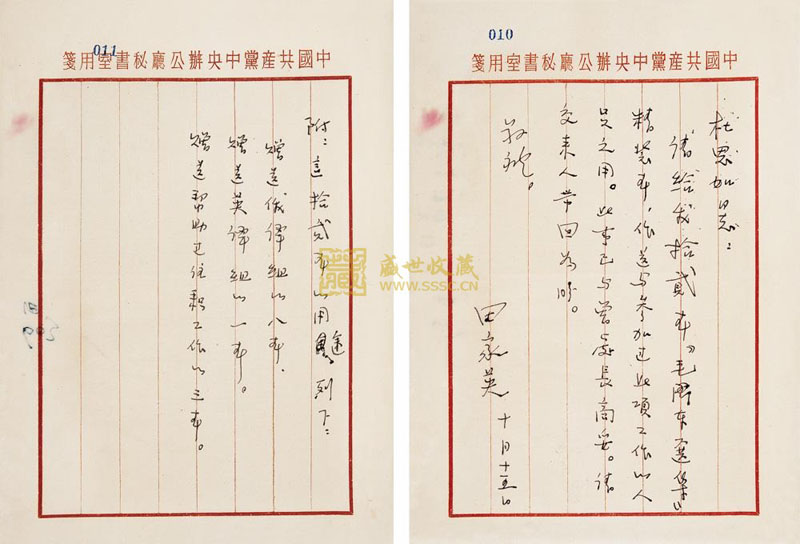 010
中國共産黨中央辦公廳秘書室用箋
杜 同志：
请给我拾貳本《毛澤东選集》
精裝本，作送与参加过此項工作的人
员之用。此事已与曾处長商妥。请
交来人带回为盼。
敬禮。
田家英 十月十五日
011
中國共産黨中央辦公廳秘書室用箋
附：這拾貳本的用途列下：
赠送俄譯組的八本，
赠送英譯組的一本。
赠送幫助过 工作的三本。
盛世收藏
WWW.SSSC.CN